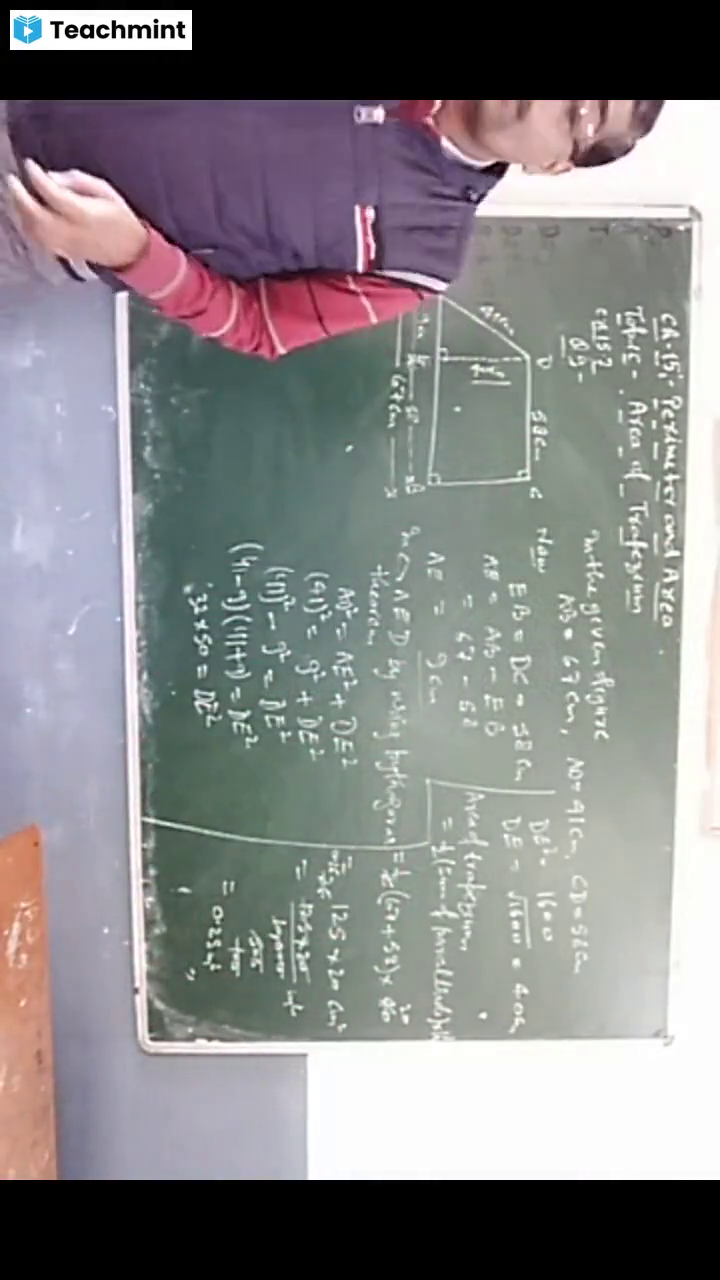 Teachmint
Ch-15: Perimeter and Area
Topic - Area of Trapezium
Ex 15.2
Q9-
D 58cm C
41cm
67cm
In the given figure
AB = 67 cm, AD = 41 cm, CD = 58 cm
Now
EB = DC = 58 cm
AE = AB - EB
= 67 - 58
AE = 9 cm
In △ AED by using Pythagoras
theorem
AD² = AE² + DE²
(41)² = 9² + DE²
(41)² - 9² = DE²
(41-9)(41+9) = DE²
32 x 50 = DE²
DE² = 1600
DE = √1600 = 40cm
Area of trapezium
= ½ (Sum of parallel sides) x h
= ½ (67 + 58) x 40 20
= 125 x 20 cm²
= 125 x 20
= 0.25 m²